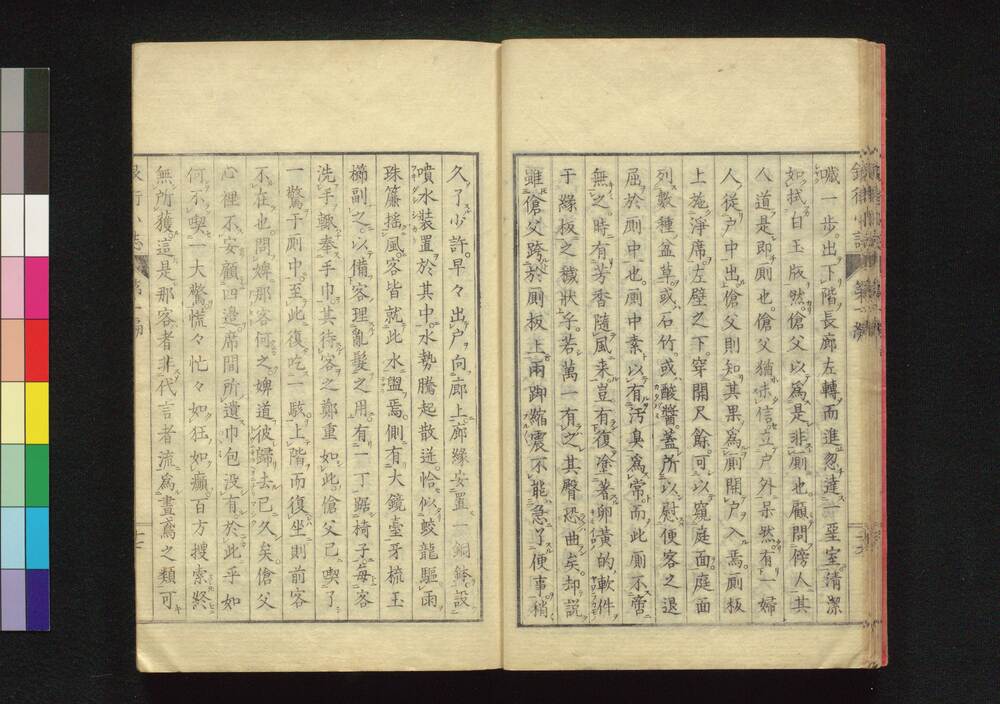 噦一步出下階長廊左轉而進忽達一堊室清潔
如拭白玉版然傖父以爲是非厠也顧問傍人其
人道是即厠也傖父猶未信立戸外呆然有一婦
人從戸中出傖父則知其果爲厠開戸入焉厠板
上施淨席左壁之下穿開尺餘可以窺庭面庭面
列數種盆草或石竹或酸醬蓋所以慰便客之退
屈於厠中也厠中素以有汚臭爲常而此厠不啻
無之時有芳香隨風来豈有復塗著卵黄的軟件
于緣板之穢狀乎若萬一有之其臀恐曲矣却説
雖傖父跨於厠板上兩踋縮震不能急了便事稍
久了少許早々出户向廊上廊緣安置一銅鉢設
噴水装置於其中水勢騰起散迸恰似蛟龍驅雨
珠簾搖風客皆就此水盥焉側有大鏡臺牙梳玉
櫛副之以備客理亂髮之用有一丁踞椅子每客
洗手輙奉手巾其待客之鄭重如此傖父已喫了
一驚于厠中至此復吃一駭上階而復坐則前客
不在也問婢那客何之婢道彼歸去已久矣傖父
心裡不安顧四邉席間所遺巾包没有於此乎如
何不喫一大驚慌々忙々如狂如癲百方搜索終
無所獲這是那客者非代言者流爲晝鳶之類可